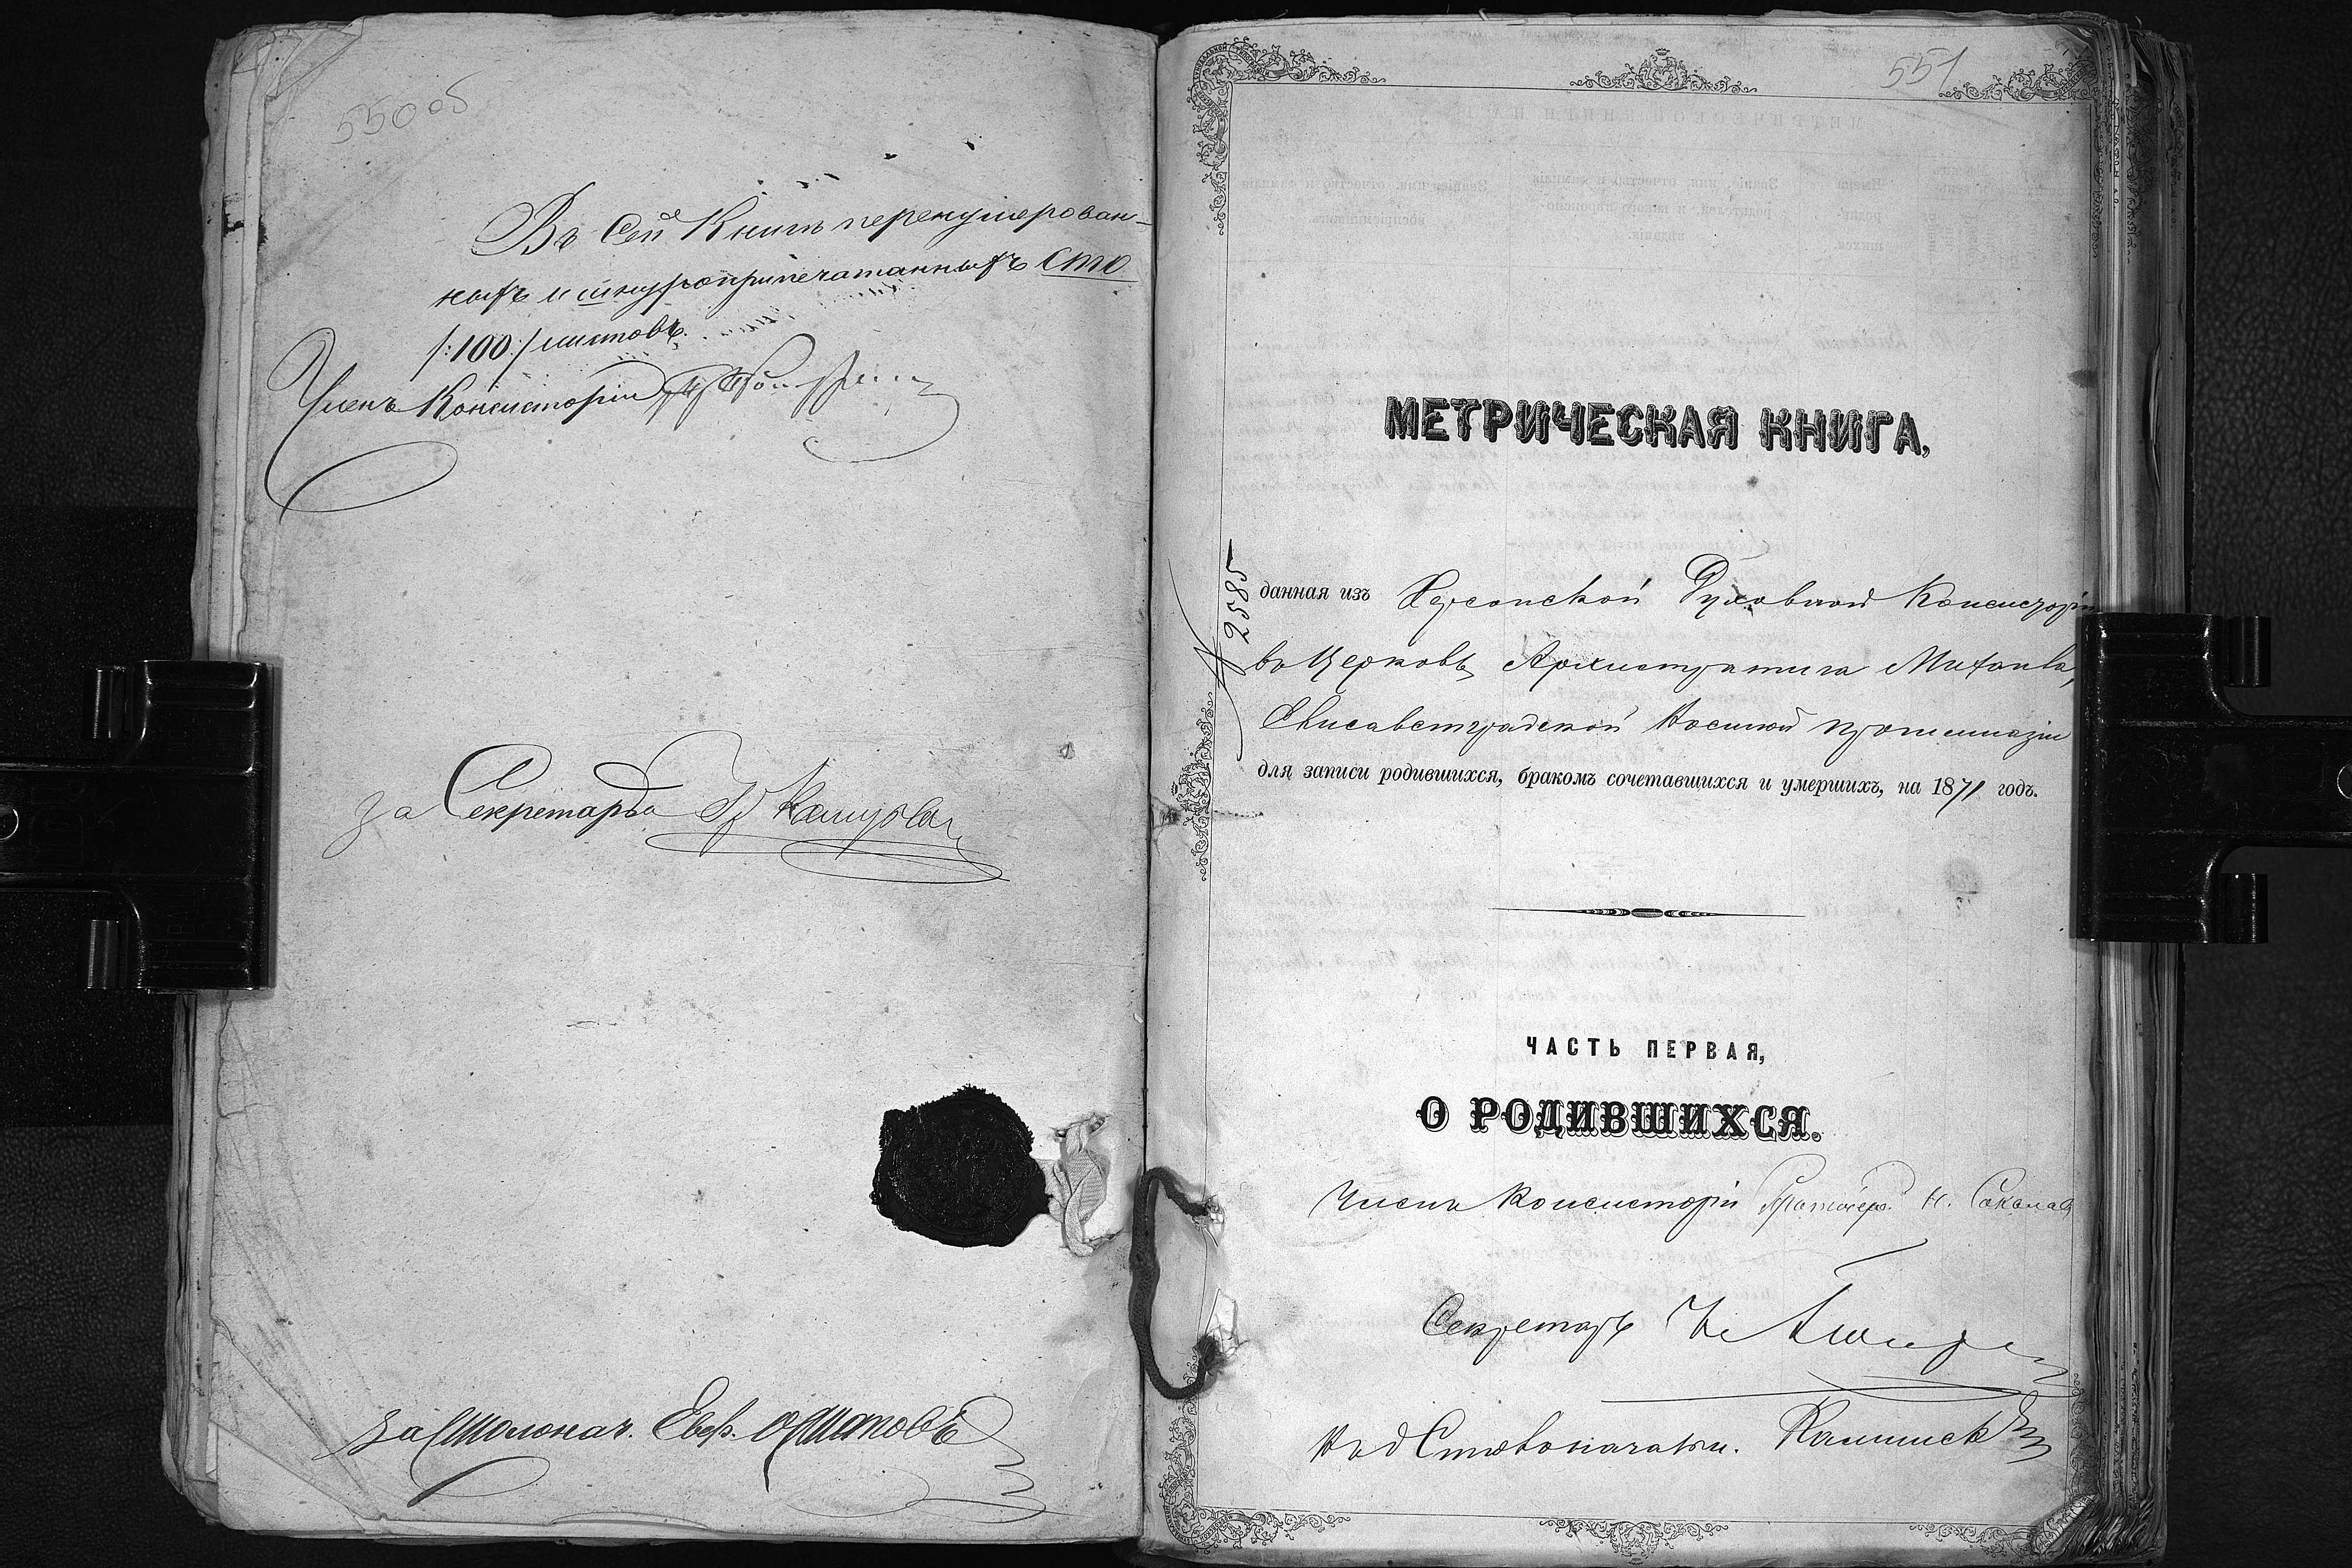 550 об
Въ сей Книгѣ перенумерован-
ныхъ и шнуроприпечатанныхъ Сто
/:100:/ листовъ.
Членъ Консисторіи
за Секретаря
за Столонач. Евф.
551
МЕТРИЧЕСКАЯ КНИГА,
№ 2585
данная изъ Херсонской Духовной Консисторіи
въ Церковь Архистратига Михаила,
Елисаветградской Военной прогимназіи
для записи родившихся, бракомъ сочетавшихся и умершихъ, на 1871 годъ.
ЧАСТЬ ПЕРВАЯ,
О РОДИВШИХСЯ.
Членъ Консисторіи Протоіерей Н. Соколов
Секретарь